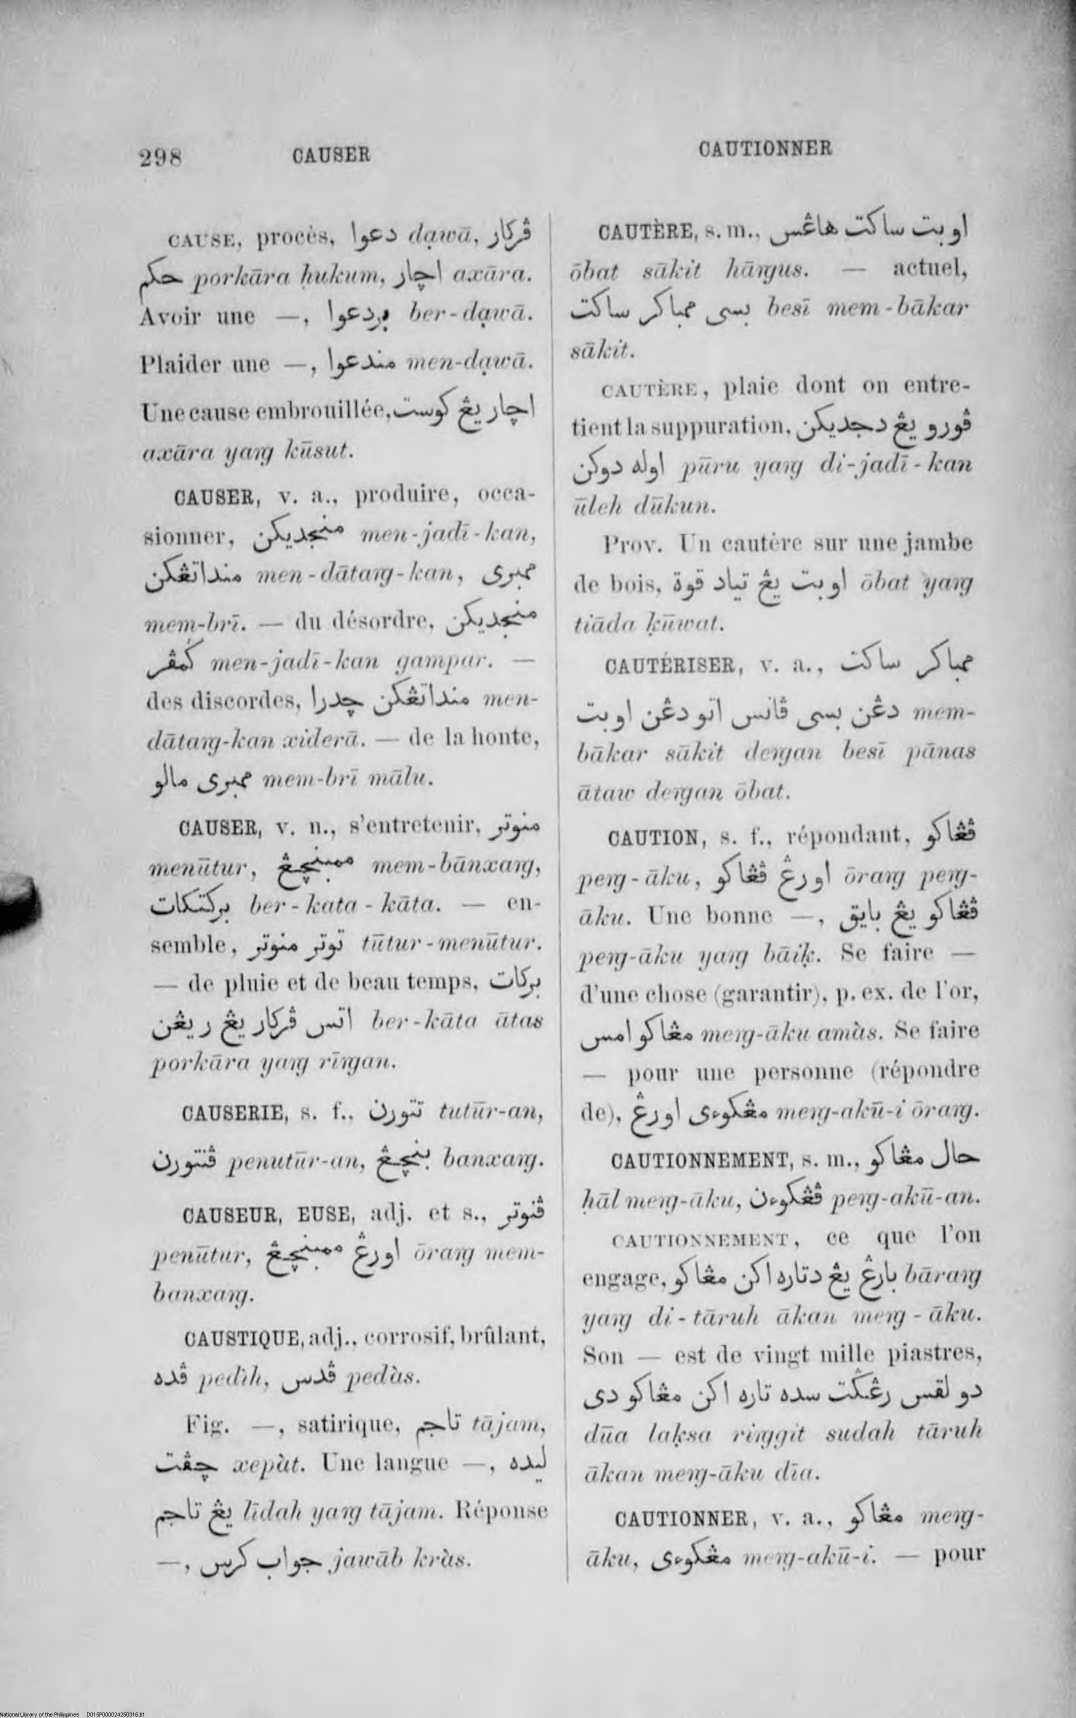 298 CAUSER CAUTIONNER
CAUSE, procès, دعوا dạwā, ڤركار
حكم porkāra ḥukum, اچار axāra.
Avoir une —, بردعوا ber-dạwā.
Plaider une —, مندعوا men-dạwā.
Une cause embrouillée, اچار يڠ كوست
axāra yaɴg kūsut.
CAUSER, v. a., produire, occa-
sionner, منجديكن men-jadī-kan,
منداتڠكن men-dātaɴg-kan, ممبرى
mem-brī. — du désordre, منجديكن
گمڤر men-jadī-kan gampar. —
des discordes, منداتڠكن چدرا men-
dātaɴg-kan xiderā. — de la honte,
ممبرى مالو mem-brī mālu.
CAUSER, v. n., s'entretenir, منوتر
menūtur, ممبنچڠ mem-bānxaɴg,
بركتكات ber-kata-kāta. — en-
semble, توتر منوتر tūtur-menūtur.
— de pluie et de beau temps, بركات
اتس ڤركار يڠ ريڠن ber-kāta ātas
porkāra yaɴg rīɴgan.
CAUSERIE, s. f., تتورن tutūr-an,
ڤنتورن penutūr-an, بنچڠ banxaɴg.
CAUSEUR, EUSE, adj. et s., ڤنوتر
penūtur, اورڠ ممبنچڠ ōraɴg mem-
banxaɴg.
CAUSTIQUE, adj., corrosif, brûlant,
ڤده pedìh, ڤدس pedàs.
Fig. —, satirique, تاجم tājam,
چڤت xepàt. Une langue —, ليده
يڠ تاجم līdah yaɴg tājam. Réponse
—, جواب كرس jawāb kràs.
CAUTÈRE, s. m., اوبت ساكت هاڠس
ōbat sākit hāɴgus. — actuel,
بسى ممباكر ساكت besī mem-bākar
sākit.
CAUTÈRE, plaie dont on entre-
tient la suppuration, ڤورو يڠ دجديكن
اوله دوكن pūru yaɴg di-jadī-kan
ūleh dūkun.
Prov. Un cautère sur une jambe
de bois, اوبت يڠ تياد قوة ōbat yaɴg
tiāda ḳūwat.
CAUTÉRISER, v. a., ممباكر ساكت
دڠن بسى ڤانس اتو دڠن اوبت mem-
bākar sākit deɴgan besī pānas
ātaw deɴgan ōbat.
CAUTION, s. f., répondant, ڤڠاكو
peɴg-āku, اورڠ ڤڠاكو ōraɴg peɴg-
āku. Une bonne —, ڤڠاكو يڠ بايق
peɴg-āku yaɴg bāiḳ. Se faire —
d'une chose (garantir), p. ex. de l'or,
مڠاكو امس meɴg-āku amàs. Se faire
— pour une personne (répondre
de), مڠكوءى اورڠ meɴg-akū-i ōraɴg.
CAUTIONNEMENT, s. m., حال مڠاكو
ḥāl meɴg-āku, ڤڠكوءن peɴg-akū-an.
CAUTIONNEMENT, ce que l'on
engage, بارڠ يڠ دتاره اكن مڠاكو bāraɴg
yaɴg di-tāruh ākan meɴg-āku.
Son — est de vingt mille piastres,
دو لقس رڠگت سده تاره اكن مڠاكو دى
dūa laḳsa riɴggit sudah tāruh
ākan meɴg-āku dīa.
CAUTIONNER, v. a., مڠاكو meɴg-
āku, مڠكوءى meɴg-akū-i. — pour
National Library of the Philippines